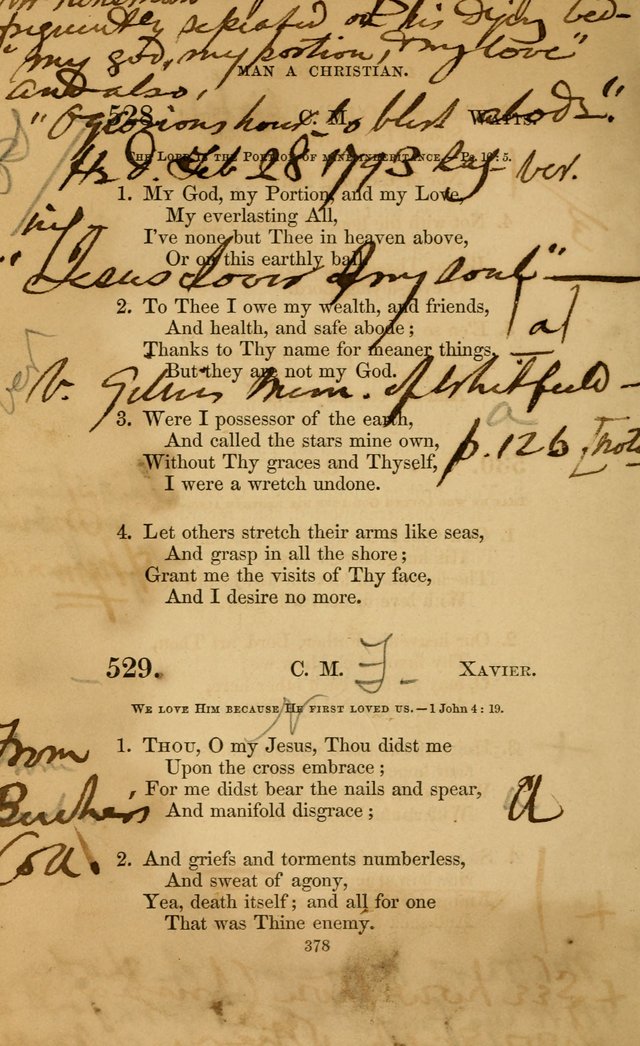 frequently repeated on his dying bed-
"my god, my portion, & my love"
MAN A CHRISTIAN.
and also,
528. C. M. WATTS.
"O glorious hour, o blest abode".
THE LORD IS THE PORTION OF MINE INHERITANCE.—Ps. 16: 5.
He d. Feb 28 1793 ver.
1. MY God, my Portion, and my Love,
My everlasting All,
I've none but Thee in heaven above,
Or on this earthly ball.
"Jesus lover of my soul"—
2. To Thee I owe my wealth, and friends,
And health, and safe abode;
Thanks to Thy name for meaner things,
But they are not my God.
a
v. Gillies Mem. of Whitfield—
3. Were I possessor of the earth,
And called the stars mine own,
Without Thy graces and Thyself,
I were a wretch undone.
a
p. 126 [note
4. Let others stretch their arms like seas,
And grasp in all the shore;
Grant me the visits of Thy face,
And I desire no more.
529. C. M. XAVIER.
WE LOVE HIM BECAUSE HE FIRST LOVED US.—1 John 4: 19.
1. THOU, O my Jesus, Thou didst me
Upon the cross embrace;
For me didst bear the nails and spear,
And manifold disgrace;
From
Coll.
a
2. And griefs and torments numberless,
And sweat of agony,
Yea, death itself; and all for one
That was Thine enemy.
378